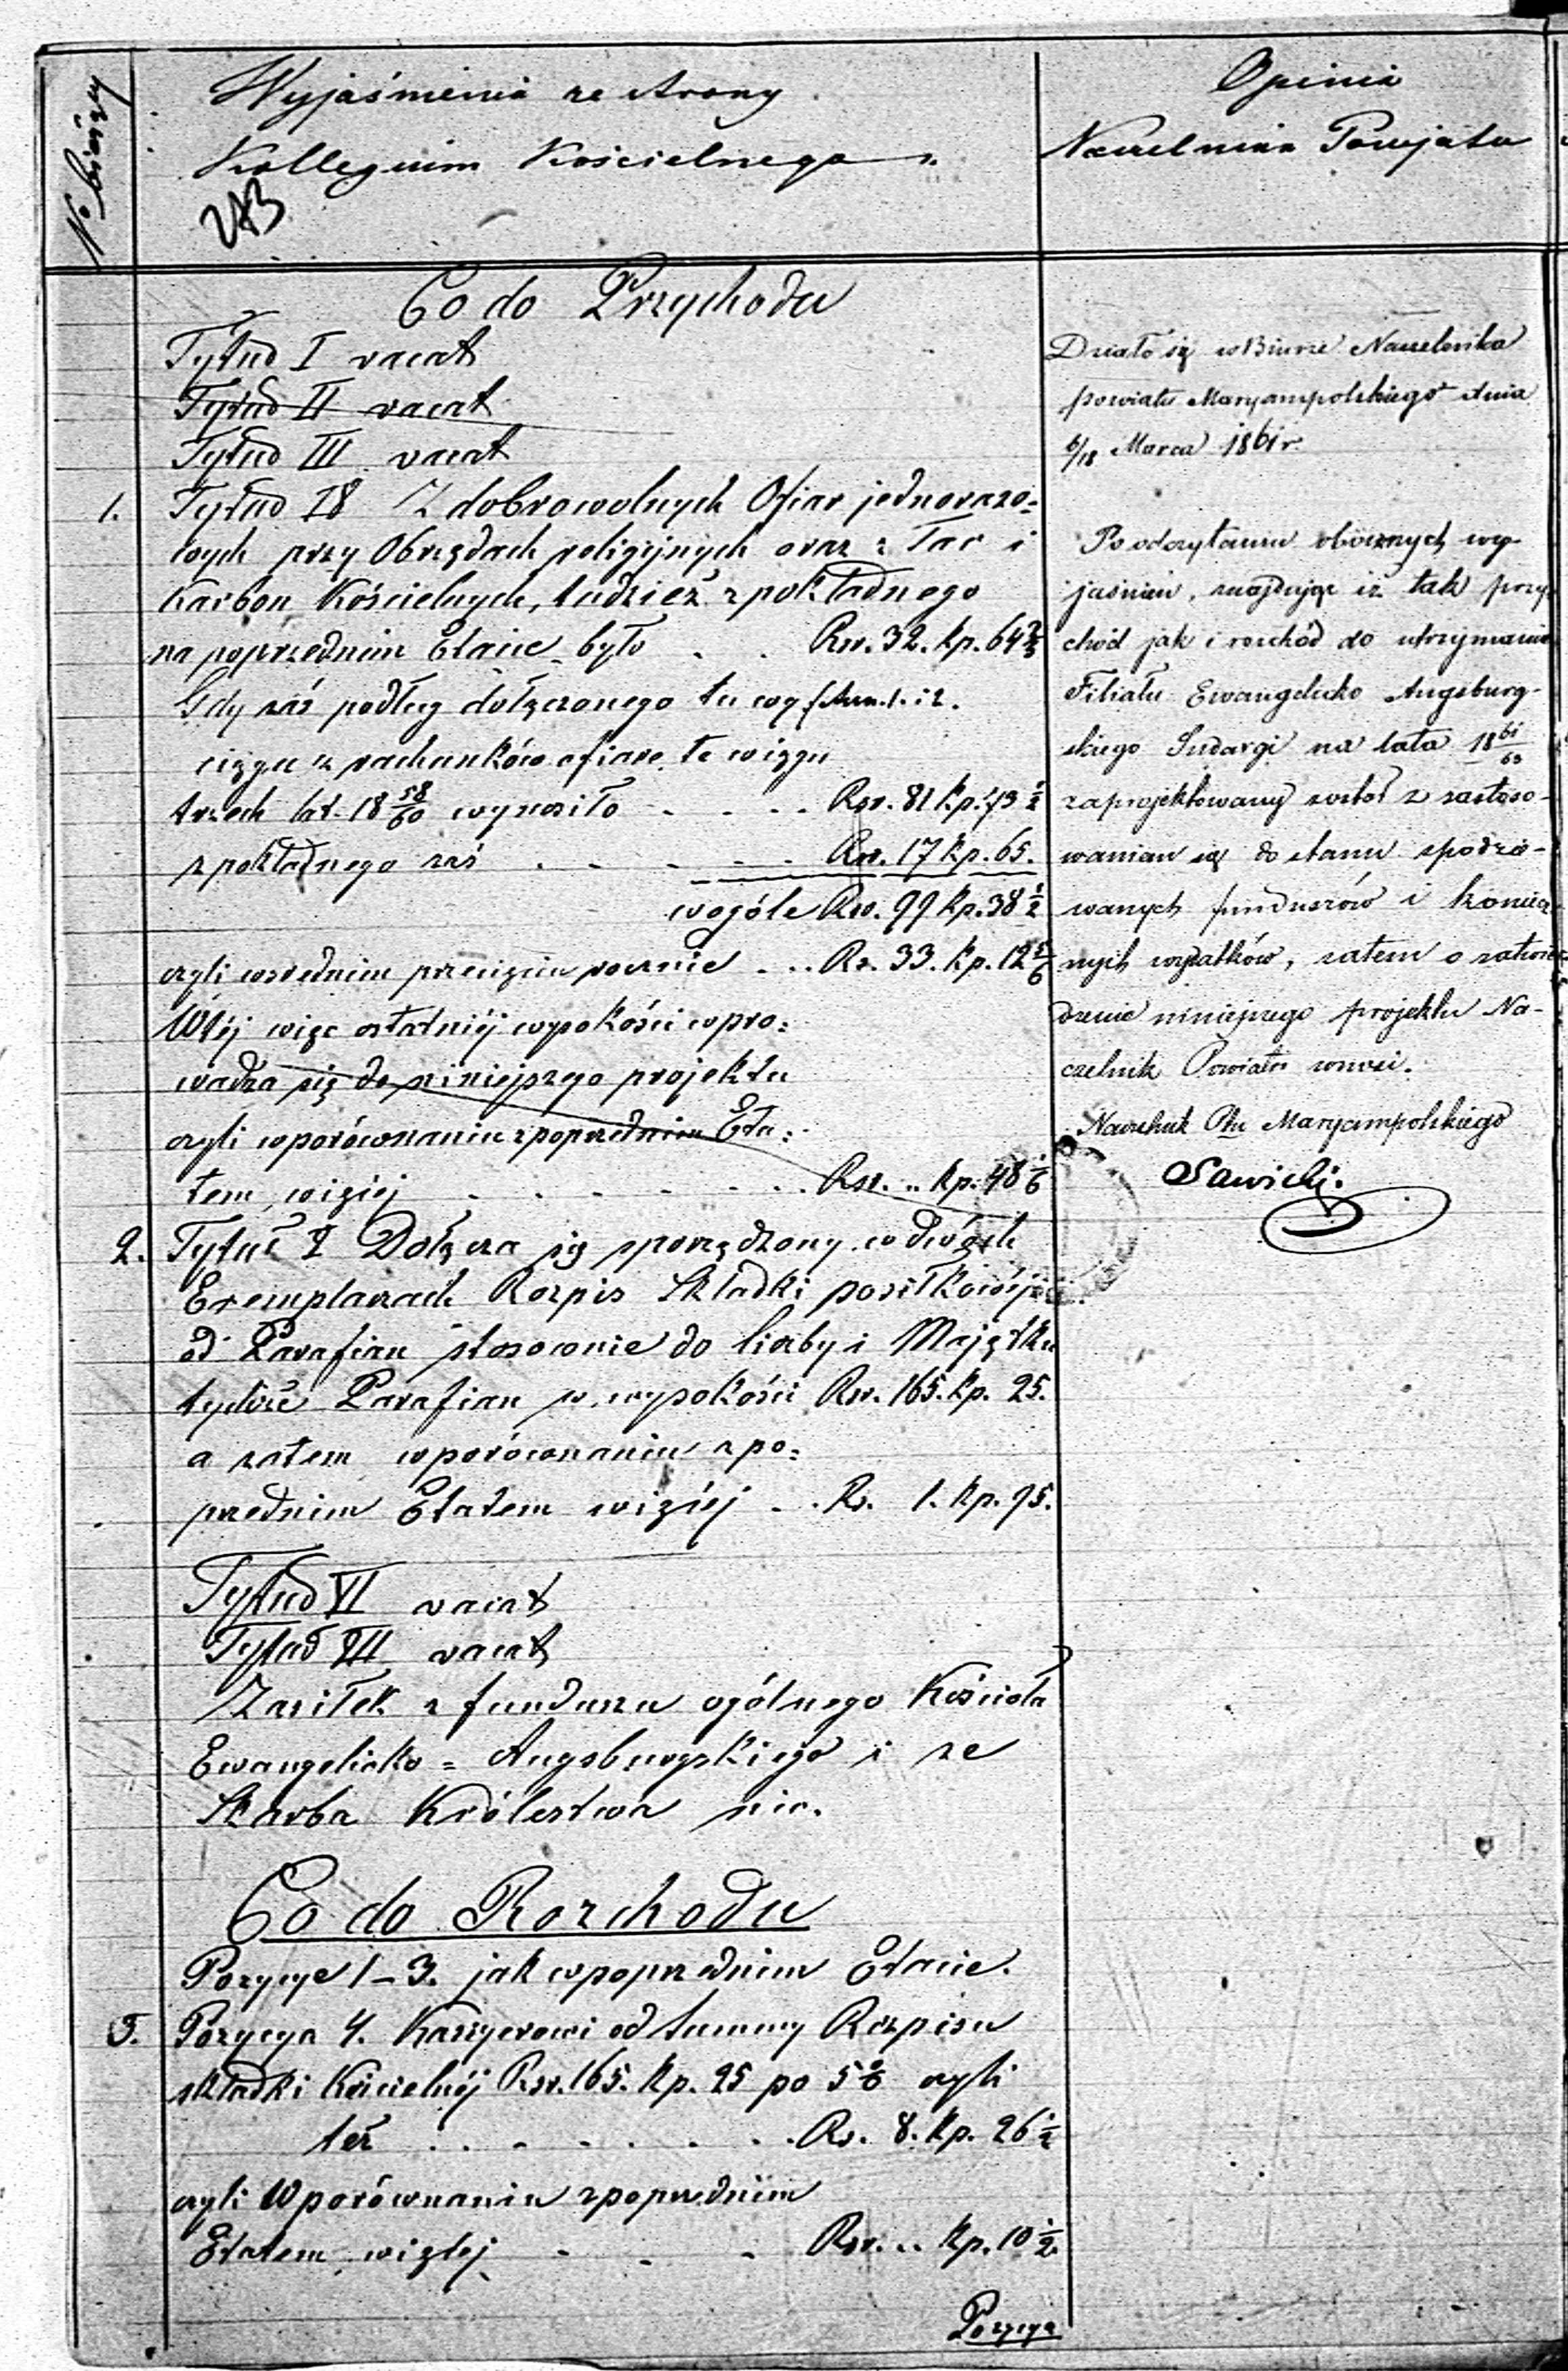 No bieżący
Wyjaśnienia ze strony
Kollegium Kościelnego
243
Opinia
Naczelnika Powiatu
Co do Przychodu
Tytuł I vacat
Tytuł II vacat
Tytuł III vacat
1. Tytuł IV Z dobrowolnych Ofiar jednorazo=
wych przy Obrzędach religijnych oraz z Tac i
Karbon Kościelnych, tudzież z pokładnego
na poprzednim Etacie było . . Rsr. 32. kp. 64 2/3
Gdy zaś podług dołączonego tu wy
ciągu z rachunków ofiar te w ciągu
trzech lat 18 58/60 wynosiło . . . . Rsr. 81 kp. 73 1/2
z pokładnego zaś . . . . . . Rsr. 17 kp. 65.
wogóle Rsr. 99 kp. 38 1/2
czyli w srednim przecięciu rocznie . . . Rs. 33. kp. 12 5/6
W téj więc ostatniéj wysokości wpro=
wadza się do niniejszego projektu
czyli w porównaniu z poprzednim Eta=
tem więcej . . . . . . . Rsr. .. kp. 48 1/6
2. Tytuł V Dołącza się sporządzony w dwóch
Exemplarzach Rozpis Składki posiłkowéj
od Parafian stosownie do liczby i Majątku
tychże Parafian w wysokości Rsr. 165. kp. 25.
a zatem w porównaniu z po=
przednim Etatem więcej . . . Rs. 1. kp. 95.
Tytuł VI vacat
Tytuł VII vacat
Zasiłek z funduszu ogólnego Kościoła
Ewangelicko = Augsburgskiego i ze
Skarbu Królestwa nic.
Co do Rozchodu
Pozycye 1–3. jak w poprzednim Etacie.
3. Pozycya 4. Kassyerowi od summy Rozpisu
składki Kościelnéj Rsr. 165. kp. 25 po 5 % czyli
też . . . . . . . . Rs. 8. kp. 26 1/2
czyli W porównaniu z poprzednim
Etatem więcej . . . Rsr. .. kp. 10 1/2
Pozycya
Działo się w Biurze Naczelnika
powiatu Maryampolskiego dnia
6/18 Marca 1861 r.
Po odczytaniu obocznych wy-
jaśnień, znajdując iż tak przy-
chód jak i rozchód do utrzymania
Filiału Ewangelicko Augsburg-
skiego Sudargi na lata 18 61/63
zaprojektowany został z zastoso-
waniem się do stanu spodzie-
wanych funduszów i koniecz
nych wydatków, zatem o zatwier
dzenie niniejszego projektu Na-
czelnik Powiatu wnosi.
Naczelnik Ptu Maryampolskiego
Sawicki.